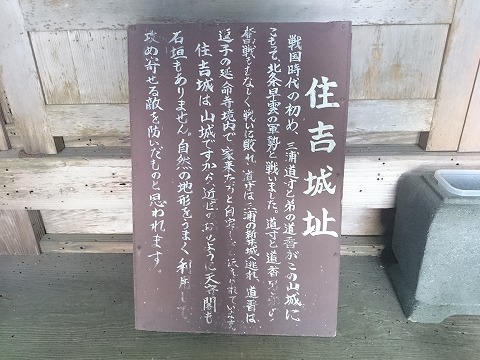 住吉城址
戦国時代の初め、三浦道寸と弟の道香がこの山城に
こもって、北条早雲の軍勢と戦いました。道寸と道香
奮戦もむなしく戦いに敗れ、道寸は三浦の新井城へ逃れ、道香は
逗子の延命寺境内で、家来たちと自害したと伝えられています。
住吉城は山城ですから、近世の城のように天守閣も
石垣もありません。自然の地形をうまく利用して
攻め寄せる敵を防いだものと思われます。